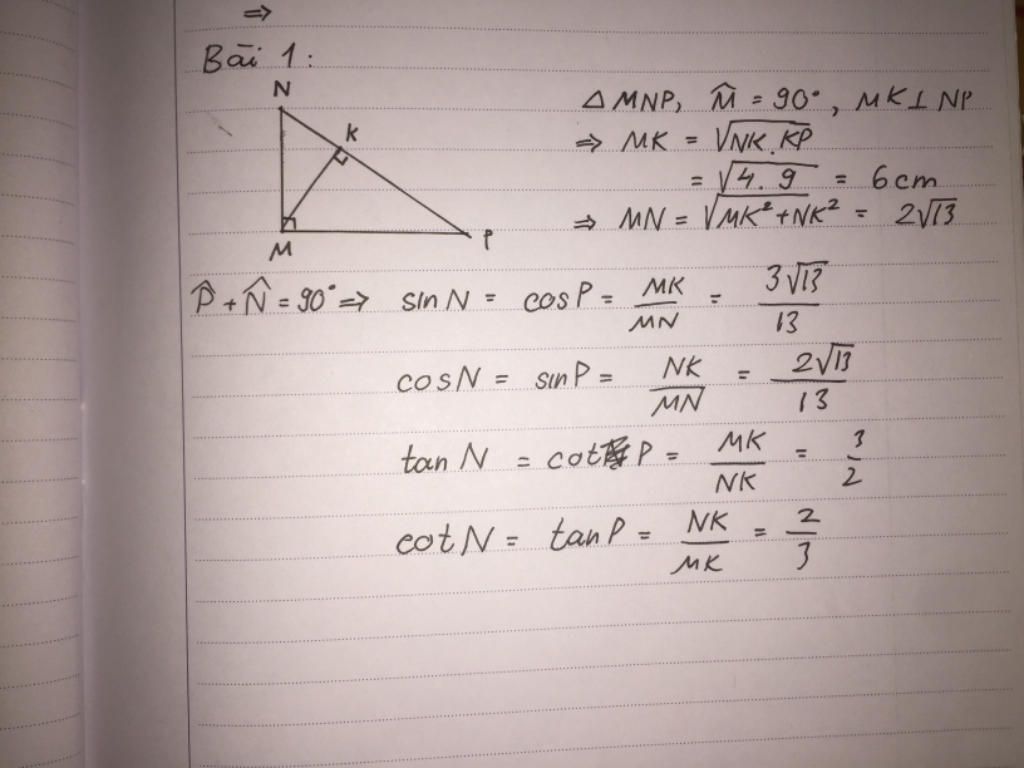 ⇒
Bài 1:
N
K
M
P
△ MNP, M̂ = 90°, MK ⊥ NP
⇒ MK = √(NK . KP)
= √(4 . 9) = 6cm
⇒ MN = √(MK² + NK²) = 2√13
P̂ + N̂ = 90° ⇒ sin N = cos P = MK/MN = 3√13/13
cos N = sin P = NK/MN = 2√13/13
tan N = cot P = MK/NK = 3/2
cot N = tan P = NK/MK = 2/3